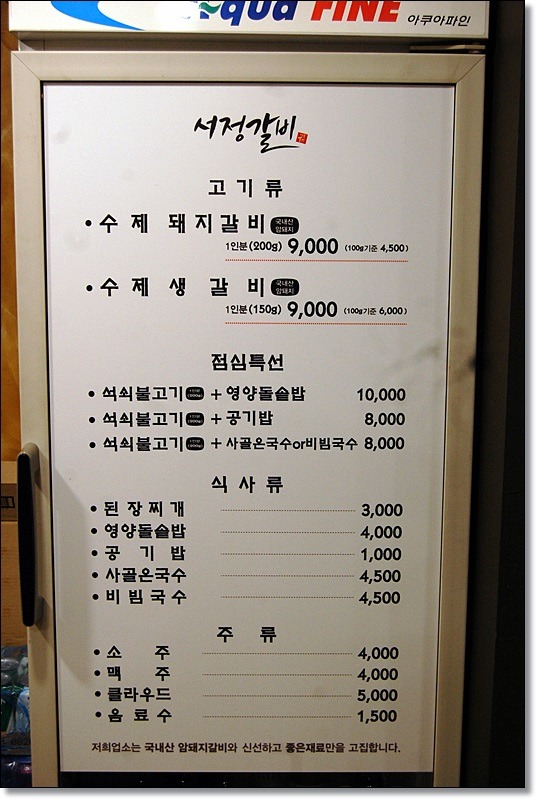 qua FINE 아쿠아파인
서정갈비
고기류
• 수제 돼지갈비 국내산 암돼지
1인분(200g) 9,000 (100g기준 4,500)
• 수제 생 갈비 국내산 암돼지
1인분(150g) 9,000 (100g기준 6,000)
점심특선
• 석쇠불고기 + 영양돌솥밥 10,000
• 석쇠불고기 + 공기밥 8,000
• 석쇠불고기 + 사골온국수or비빔국수 8,000
식사류
• 된장찌개 3,000
• 영양돌솥밥 4,000
• 공기밥 1,000
• 사골온국수 4,500
• 비빔국수 4,500
주류
• 소주 4,000
• 맥주 4,000
• 클라우드 5,000
• 음료수 1,500
저희업소는 국내산 암돼지갈비와 신선하고 좋은재료만을 고집합니다.